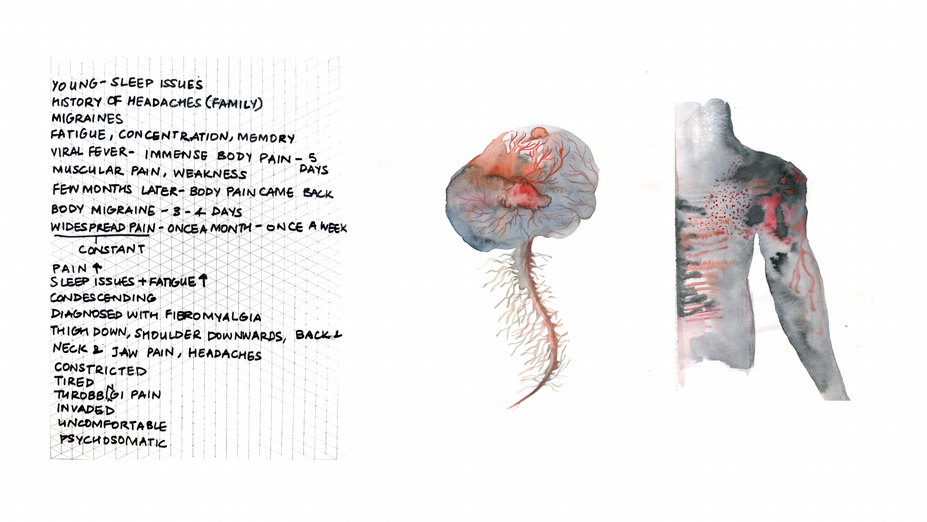 YOUNG - SLEEP ISSUES
HISTORY OF HEADACHES (FAMILY)
MIGRAINES
FATIGUE, CONCENTRATION, MEMORY
VIRAL FEVER - IMMENSE BODY PAIN - 5 DAYS
MUSCULAR PAIN, WEAKNESS
FEW MONTHS LATER - BODY PAIN CAME BACK
BODY MIGRAINE - 3 - 4 DAYS
WIDESPREAD PAIN - ONCE A MONTH - ONCE A WEEK
CONSTANT
PAIN ↑
SLEEP ISSUES + FATIGUE ↑
CONDESCENDING
DIAGNOSED WITH FIBROMYALGIA
THIGH DOWN, SHOULDER DOWNWARDS, BACK &
NECK & JAW PAIN, HEADACHES
CONSTRICTED
TIRED
THROBBING PAIN
INVADED
UNCOMFORTABLE
PSYCHOSOMATIC